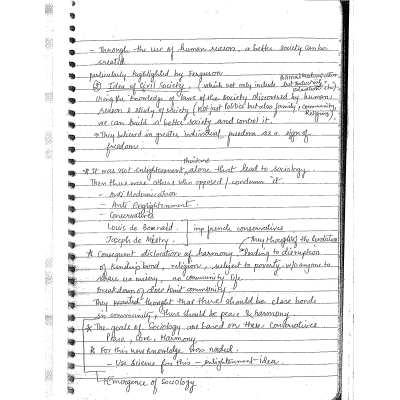 - Through the use of human reason, a better society can be
created.
particularly highlighted by Ferguson
③ Idea of Civil Society, (which not only include political but
Using the knowledge of laws of the society discovered by human
reason & study of society (not just politics but also family, community, religion),
we can build a better society and control it.
→ They believed in greater individual freedom as a sign of
freedom.
thinkers
* It was not enlightenment, alone that lead to sociology.
Then there were others who opposed / condemn it.
- Anti Modernisation
- Anti Englightenment.
- Conservatives
Louis de Bonald
Joseph de
imp french conservatives
They thought of the Revolution
* Consequent dislocation of harmony leading to disruption
of kinship bond, religion, subject to poverty w/o anyone to
share our misery, no community life.
Breakdown of close knit community.
They thought that there should be close bonds
in community, there should be peace & harmony
* The goals of Sociology are based on these Conservatives
Peace, Love, Harmony.
* For this new knowledge was needed.
- Use Science for this - enlightenment - idea.
→ Emergence of Sociology.